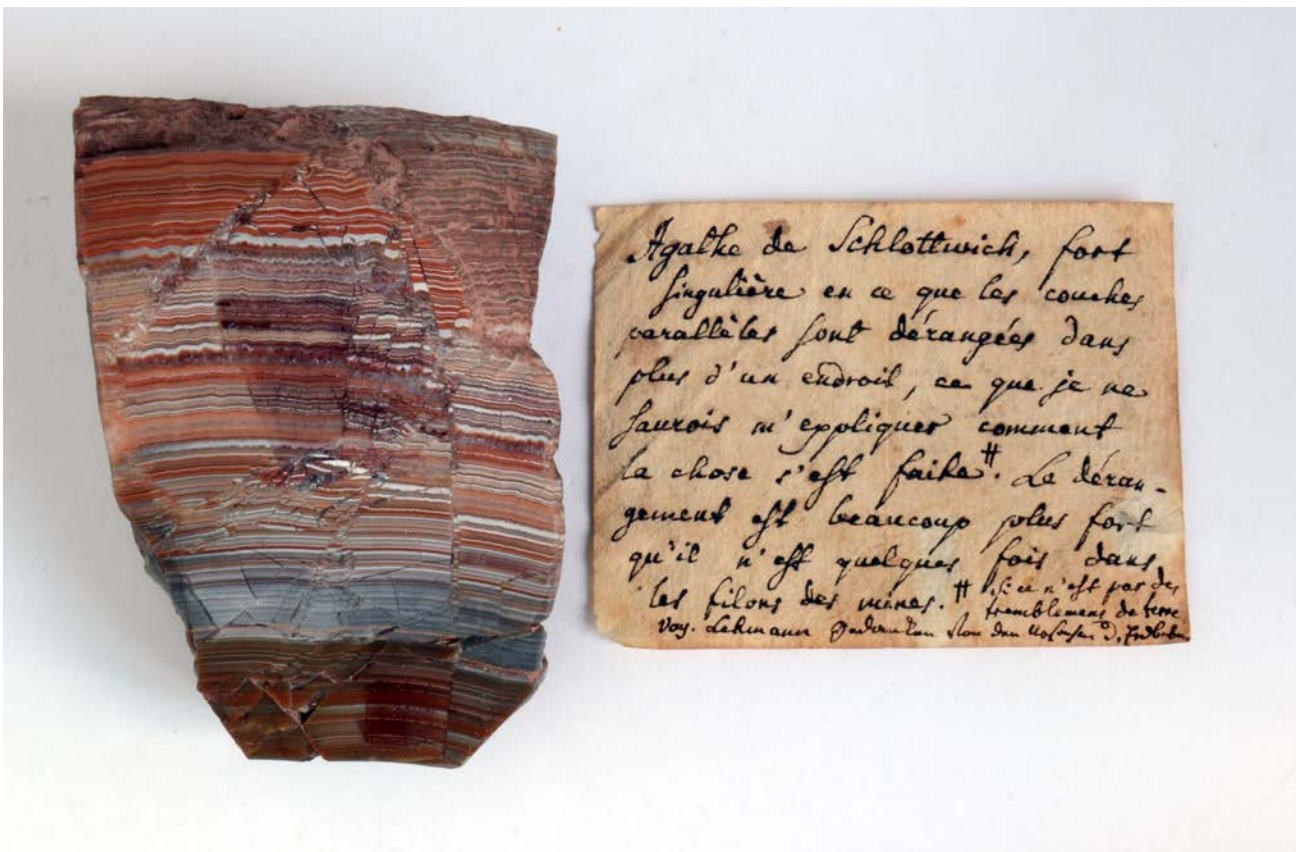 Agathe de Schlottwich, fort
singulière en ce que les couches
parallèles sont dérangées dans
plus d'un endroit, ce que je ne
saurois m'expliquer comment
la chose s'est faite #. Le déran-
gement est beaucoup plus fort
qu'il n'est quelques fois dans
les filons des mines. # Si ce n'est pas des
tremblemens de terre
voy. Lehmann Gedanken von den